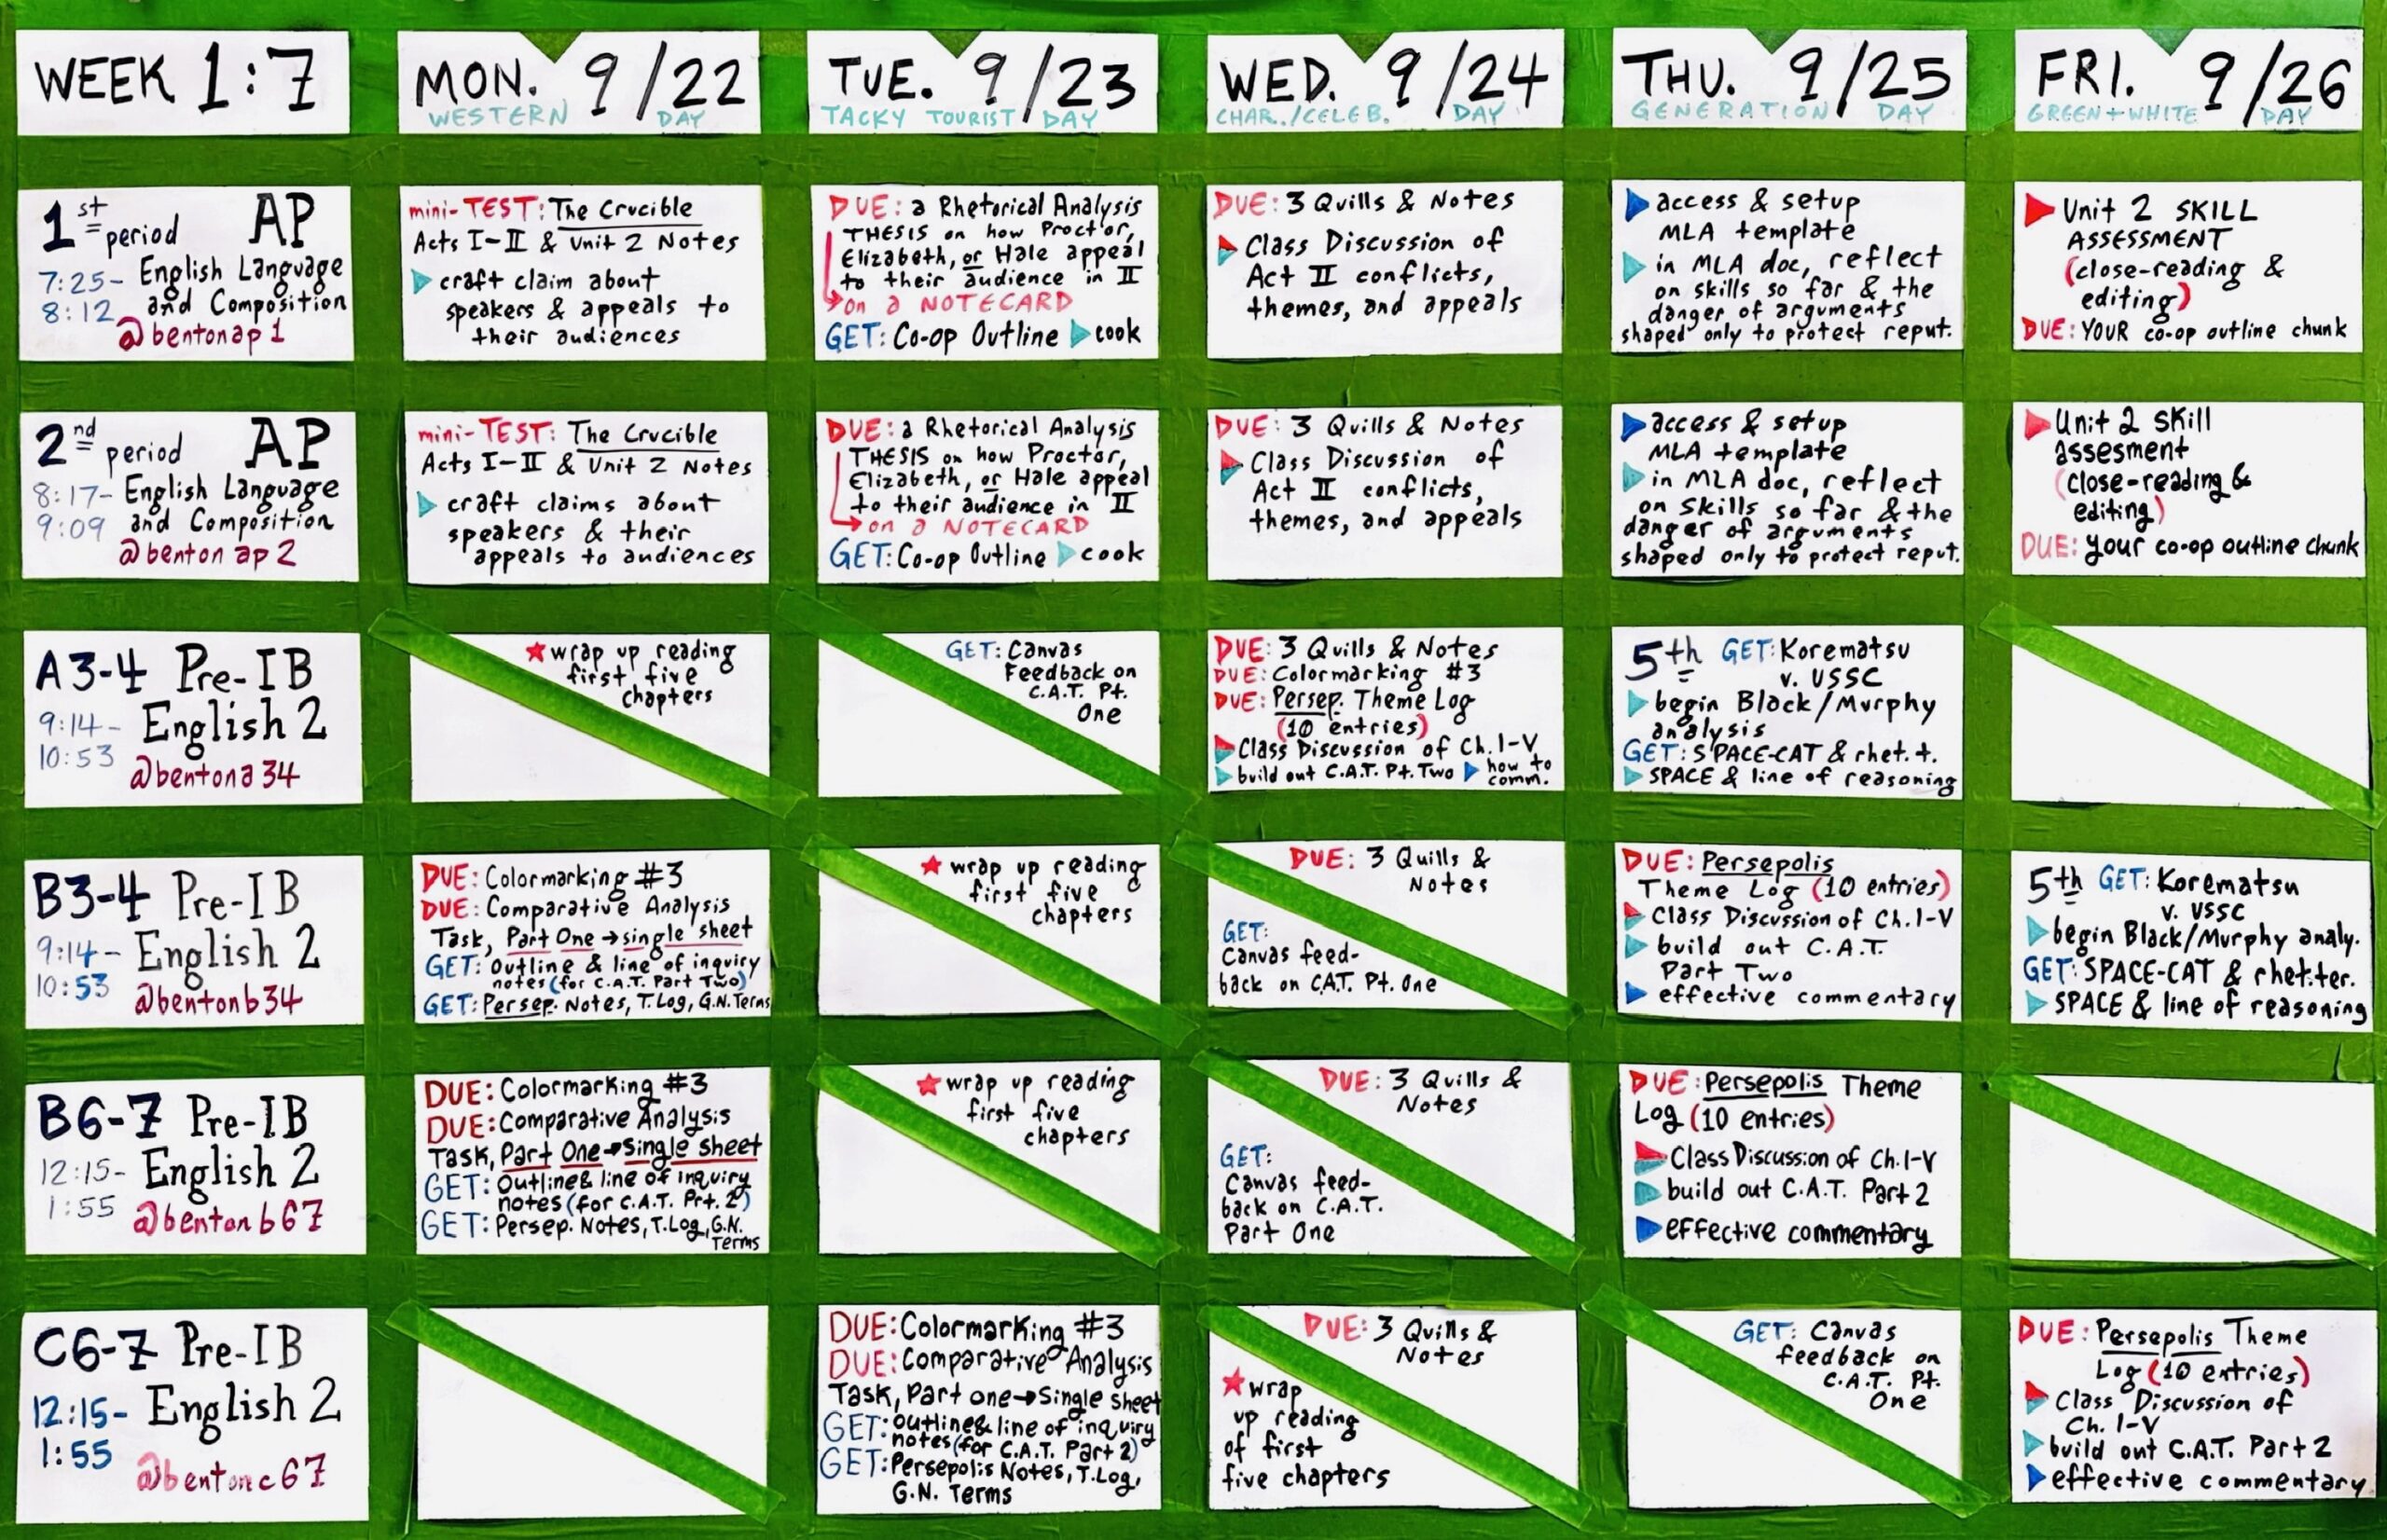 WEEK 1:7
MON. 9/22
WESTERN DAY
TUE. 9/23
TACKY TOURIST DAY
WED. 9/24
CHAR./CELEB. DAY
THU. 9/25
GENERATION DAY
FRI. 9/26
GREEN+WHITE DAY
1st period AP
7:25-8:12
English Language
and Composition
@bentonap1
mini-TEST: The Crucible
Acts I-II & Unit 2 Notes
craft claim about
speakers & appeals to
their audiences
DUE: a Rhetorical Analysis
THESIS on how Proctor,
Elizabeth, or Hale appeal
to their audience in II
on a NOTECARD
GET: Co-op Outline cook
DUE: 3 Quills & Notes
Class Discussion of
Act II conflicts,
themes, and appeals
access & setup
MLA template
in MLA doc, reflect
on skills so far & the
danger of arguments
shaped only to protect reput.
Unit 2 SKILL
ASSESSMENT
(close-reading &
editing)
DUE: YOUR co-op outline chunk
2nd period AP
8:17-9:09
English Language
and Composition
@benton ap2
mini-TEST: The Crucible
Acts I-II & Unit 2 Notes
craft claims about
speakers & their
appeals to audiences
DUE: a Rhetorical Analysis
THESIS on how Proctor,
Elizabeth, or Hale appeal
to their audience in II
on a NOTECARD
GET: Co-op Outline cook
DUE: 3 Quills & Notes
Class Discussion of
Act II conflicts,
themes, and appeals
access & setup
MLA template
in MLA doc, reflect
on skills so far & the
danger of arguments
shaped only to protect reput.
Unit 2 Skill
assesment
(close-reading &
editing)
DUE: your co-op outline chunk
A3-4 Pre-IB
9:14-10:53
English 2
@bentona34
wrap up reading
first five
chapters
GET: Canvas
Feedback on
C.A.T. Pt.
One
DUE: 3 Quills & Notes
DUE: Colormarking #3
DUE: Persep. Theme Log
(10 entries)
Class Discussion of Ch. I-V
build out C.A.T. Pt. Two how to
comm.
5th GET: Korematsu
v. USSC
begin Black/Murphy
analysis
GET: SPACE-CAT & rhet. t.
SPACE & line of reasoning
B3-4 Pre-IB
9:14-10:53
English 2
@bentonb34
DUE: Colormarking #3
DUE: Comparative Analysis
Task, Part One → single sheet
GET: outline & line of inquiry
notes (for C.A.T. Part Two)
GET: Persep. Notes, T.Log, G.N. Terms
wrap up reading
first five
chapters
DUE: 3 Quills &
Notes
GET:
Canvas feed-
back on C.A.T. Pt. One
DUE: Persepolis
Theme Log (10 entries)
Class Discussion of Ch. I-V
build out C.A.T.
Part Two
effective commentary
5th GET: Korematsu
v. USSC
begin Black/Murphy analy.
GET: SPACE-CAT & rhet.ter.
SPACE & line of reasoning
B6-7 Pre-IB
12:15-1:55
English 2
@bentonb67
DUE: Colormarking #3
DUE: Comparative Analysis
Task, Part One → single sheet
GET: Outline & line of inquiry
notes (for C.A.T. Prt. 2)
GET: Persep. Notes, T.Log, G.N.
Terms
wrap up reading
first five
chapters
DUE: 3 Quills &
Notes
GET:
Canvas feed-
back on C.A.T.
Part One
DUE: Persepolis Theme
Log (10 entries)
Class Discussion of Ch. I-V
build out C.A.T. Part 2
effective commentary
C6-7 Pre-IB
12:15-1:55
English 2
@bentonc67
DUE: Colormarking #3
DUE: Comparative Analysis
Task, Part one → Single Sheet
GET: outline & line of inquiry
notes (for C.A.T. Part 2)
GET: Persepolis Notes, T.Log,
G.N. Terms
DUE: 3 Quills &
Notes
wrap
up reading
of first
five chapters
GET: Canvas
feedback on
C.A.T. Pt.
One
DUE: Persepolis Theme
Log (10 entries)
Class Discussion of
Ch. I-V
build out C.A.T. Part 2
effective commentary